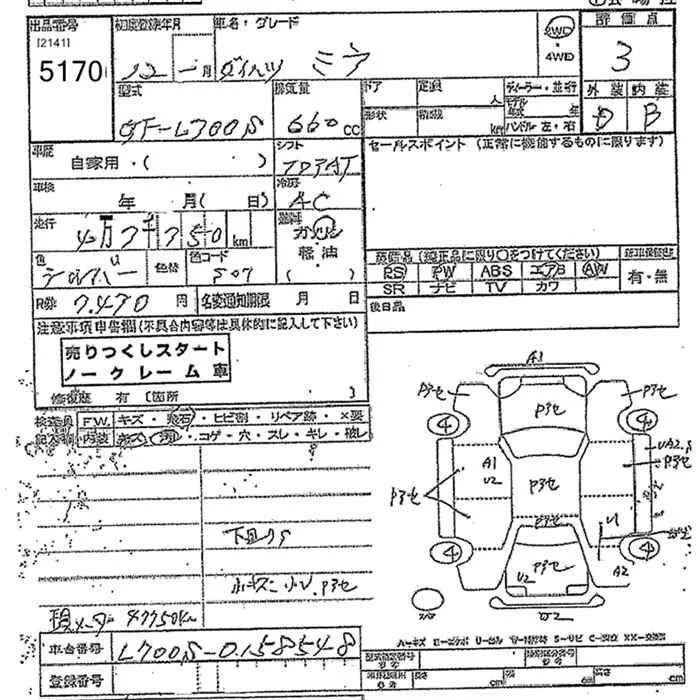 出品番号
[2141]
5170
初度登録年月
12年 1月
車名・グレード
ダイハツ ミラ
2WD
・
4WD
評価点
3
外装 内装
D B
型式
GF-L700S
排気量
660 CC
ドア
形状
定員
人
積載
kg
ディーラー・並行
モデル
年式 年
ハンドル 左・右
車歴
自家用・( )
シフト
セールスポイント (正常に機能するものに限ります)
車検
年 月( 日)
冷房
AC
走行
4万7千750 km
燃料
ガソリン
・
軽油
( )
色
シルバー
色替
色コード
S07
R券
7.470 円
名変通知期限 月 日
装備品(純正品に限り○をつけてください)
PS PW ABS エアB AW
SR ナビ TV カワ
有・無
後日品
注意事項申告欄(不具合内容等は具体的に記入して下さい)
売りつくしスタート
ノークレーム車
修復歴 有 〔箇所 〕
検査員
記入欄
FW. キズ・飛石・ヒビ割・リペア跡・×要
内装 キズ・汚・コゲ・穴・スレ・キレ・破レ
下回りS
小キズ 小U.P3セ
現メーター 47750Km
車台番号
L700S-0158548
登録番号
A1
P3セ
P3セ
P3セ
4
4
A1
U2
P3セ
P3セ
UA2.S
P3セ
P3セ
U1
4
4
U2
P3セ
A2
U2
A-キズ
cm
cm
cm